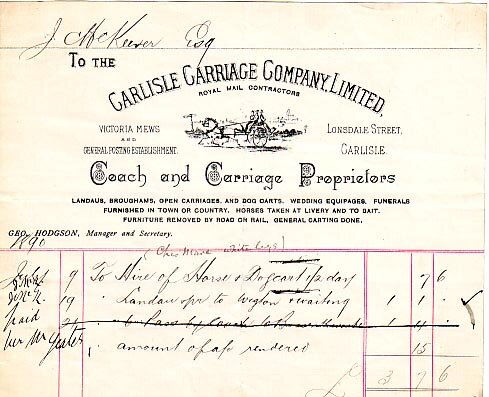 J. McKeever Esq
TO THE
CARLISLE CARRIAGE COMPANY, LIMITED,
ROYAL MAIL CONTRACTORS
VICTORIA MEWS
AND
GENERAL POSTING ESTABLISHMENT.
LONSDALE STREET,
CARLISLE.
Coach and Carriage Proprietors
LANDAUS, BROUGHAMS, OPEN CARRIAGES, AND DOG CARTS. WEDDING EQUIPAGES, FUNERALS
FURNISHED IN TOWN OR COUNTRY. HORSES TAKEN AT LIVERY AND TO BAIT.
FURNITURE REMOVED BY ROAD OR RAIL, GENERAL CARTING DONE.
GEO. HODGSON, Manager and Secretary.
1890
white legs)
9 To Hire of Horse & Dogcart pr day 7 6
19 " Landau pr to Wigton & waiting 1 1
21 6 Pass by Coach to 1 4
paid
per Mr
" amount of a/c rendered 15
£ 3 7 6